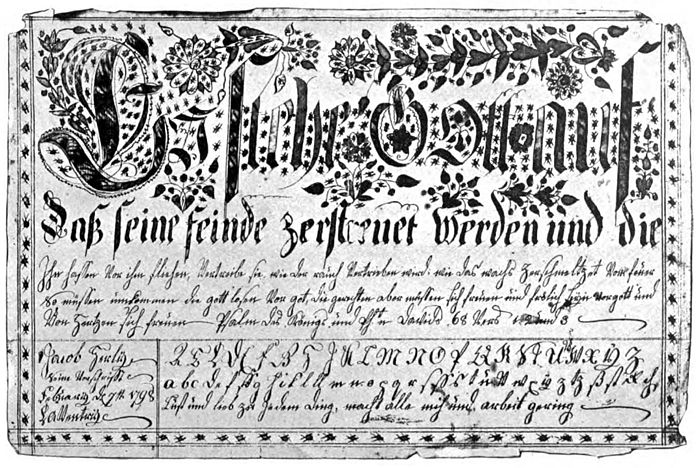 Es stehe Gott auf
Daß seine feinde zerstreuet werden und die
Ihn hassen vor ihm fliehen, Vertreibe sie, wie der rauch Vertrieben wird, wie das wachs zerschmeltzet Vom feuer
so müssen umkommen die gott losen Vor got, die gerechten aber müssen sich freuen und frölich seyn vor gott und
Von Hertzen sich freuen Psalm des Königs und Davids 68 Vers 3
Jacob
seine Vorschrifft
Februari d 7th 1798
A B C D E F G H J K L M N O P Q R S T U V W X Y Z
a b c d e f g h i k l m n o p q r s t u v w x y z
Lust und lieb zu Jedem Ding, macht alle müh und arbeit gering